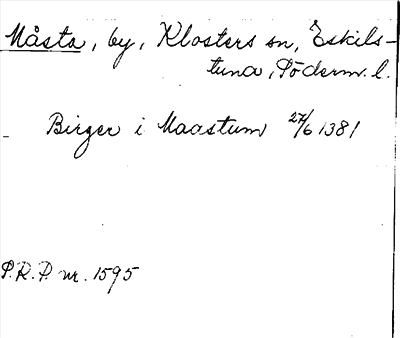 Måsta, by, Klosters sn, Eskils-
tuna, Söderm. l.
Birger i Maastum 27/6 1381
P.R.P. nr. 1595